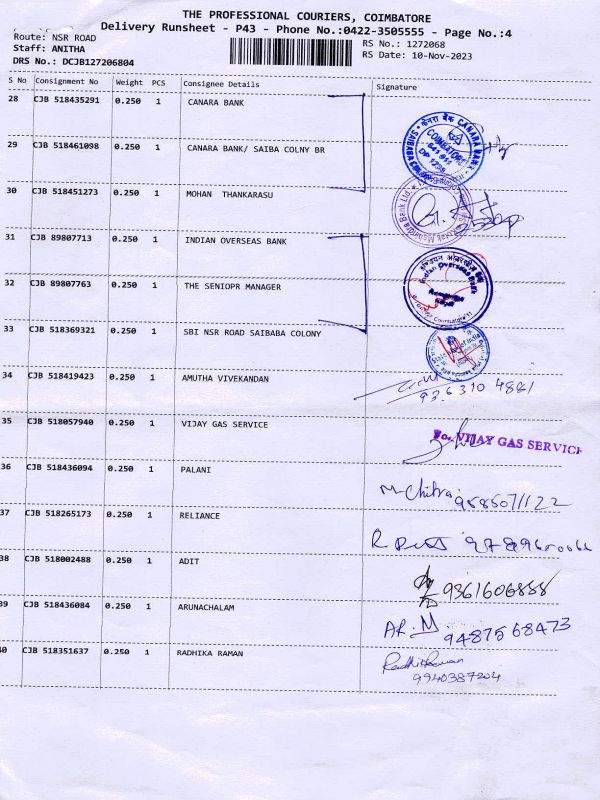 THE PROFESSIONAL COURIERS, COIMBATORE
Delivery Runsheet - P43 - Phone No.:0422-3505555 - Page No.:4
Route: NSR ROAD RS No.: 1272068
Staff: ANITHA RS Date: 10-Nov-2023
DRS No.: DCJB127206804
S No Consignment No Weight PCS Consignee Details Signature
28 CJB 518435291 0.250 1 CANARA BANK
केनरा बैंक CANARA BANK
COIMBATORE
29 CJB 518461098 0.250 1 CANARA BANK/ SAIBA COLNY BR
30 CJB 518451273 0.250 1 MOHAN THANKARASU
Kotak Mahindra Bank Ltd.
31 CJB 89807713 0.250 1 INDIAN OVERSEAS BANK
Indian Overseas Bank
32 CJB 89807763 0.250 1 THE SENIOPR MANAGER
33 CJB 518369321 0.250 1 SBI NSR ROAD SAIBABA COLONY
34 CJB 518419423 0.250 1 AMUTHA VIVEKANDAN
936310 4881
35 CJB 518057940 0.250 1 VIJAY GAS SERVICE
For VIJAY GAS SERVICE
36 CJB 518436094 0.250 1 PALANI
M-Chitra 9585071122
37 CJB 518265173 0.250 1 RELIANCE
38 CJB 518002488 0.250 1 ADIT
9361606858
39 CJB 518436084 0.250 1 ARUNACHALAM
AR. M 9487568473
40 CJB 518351637 0.250 1 RADHIKA RAMAN
Radhika Raman
9940387204